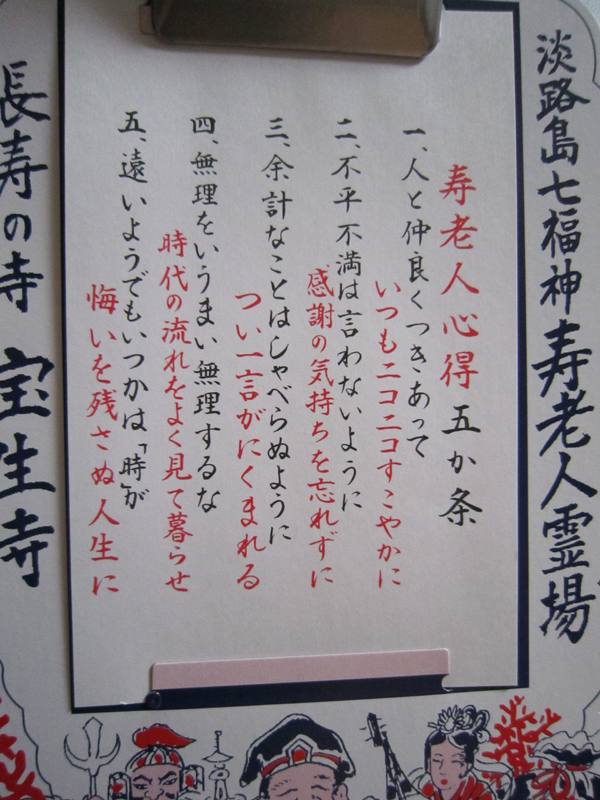 淡路島七福神寿老人霊場
寿老人心得五か条
一、人と仲良くつきあって
いつもニコニコすこやかに
二、不平不満は言わないように
感謝の気持ちを忘れずに
三、余計なことはしゃべらぬように
つい一言がにくまれる
四、無理をいうまい無理するな
時代の流れをよく見て暮らせ
五、遠いようでもいつかは「時」が
悔いを残さぬ人生に
長寿の寺 宝生寺